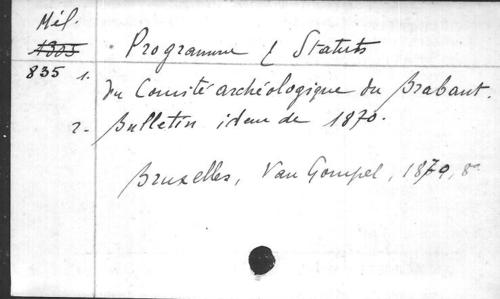 Mél.
1325
835 1. Programme & Statuts
du Comité archéologique du Brabant.
2. Bulletin idem de 1870.
Bruxelles, Van Gompel, 1870, 8º